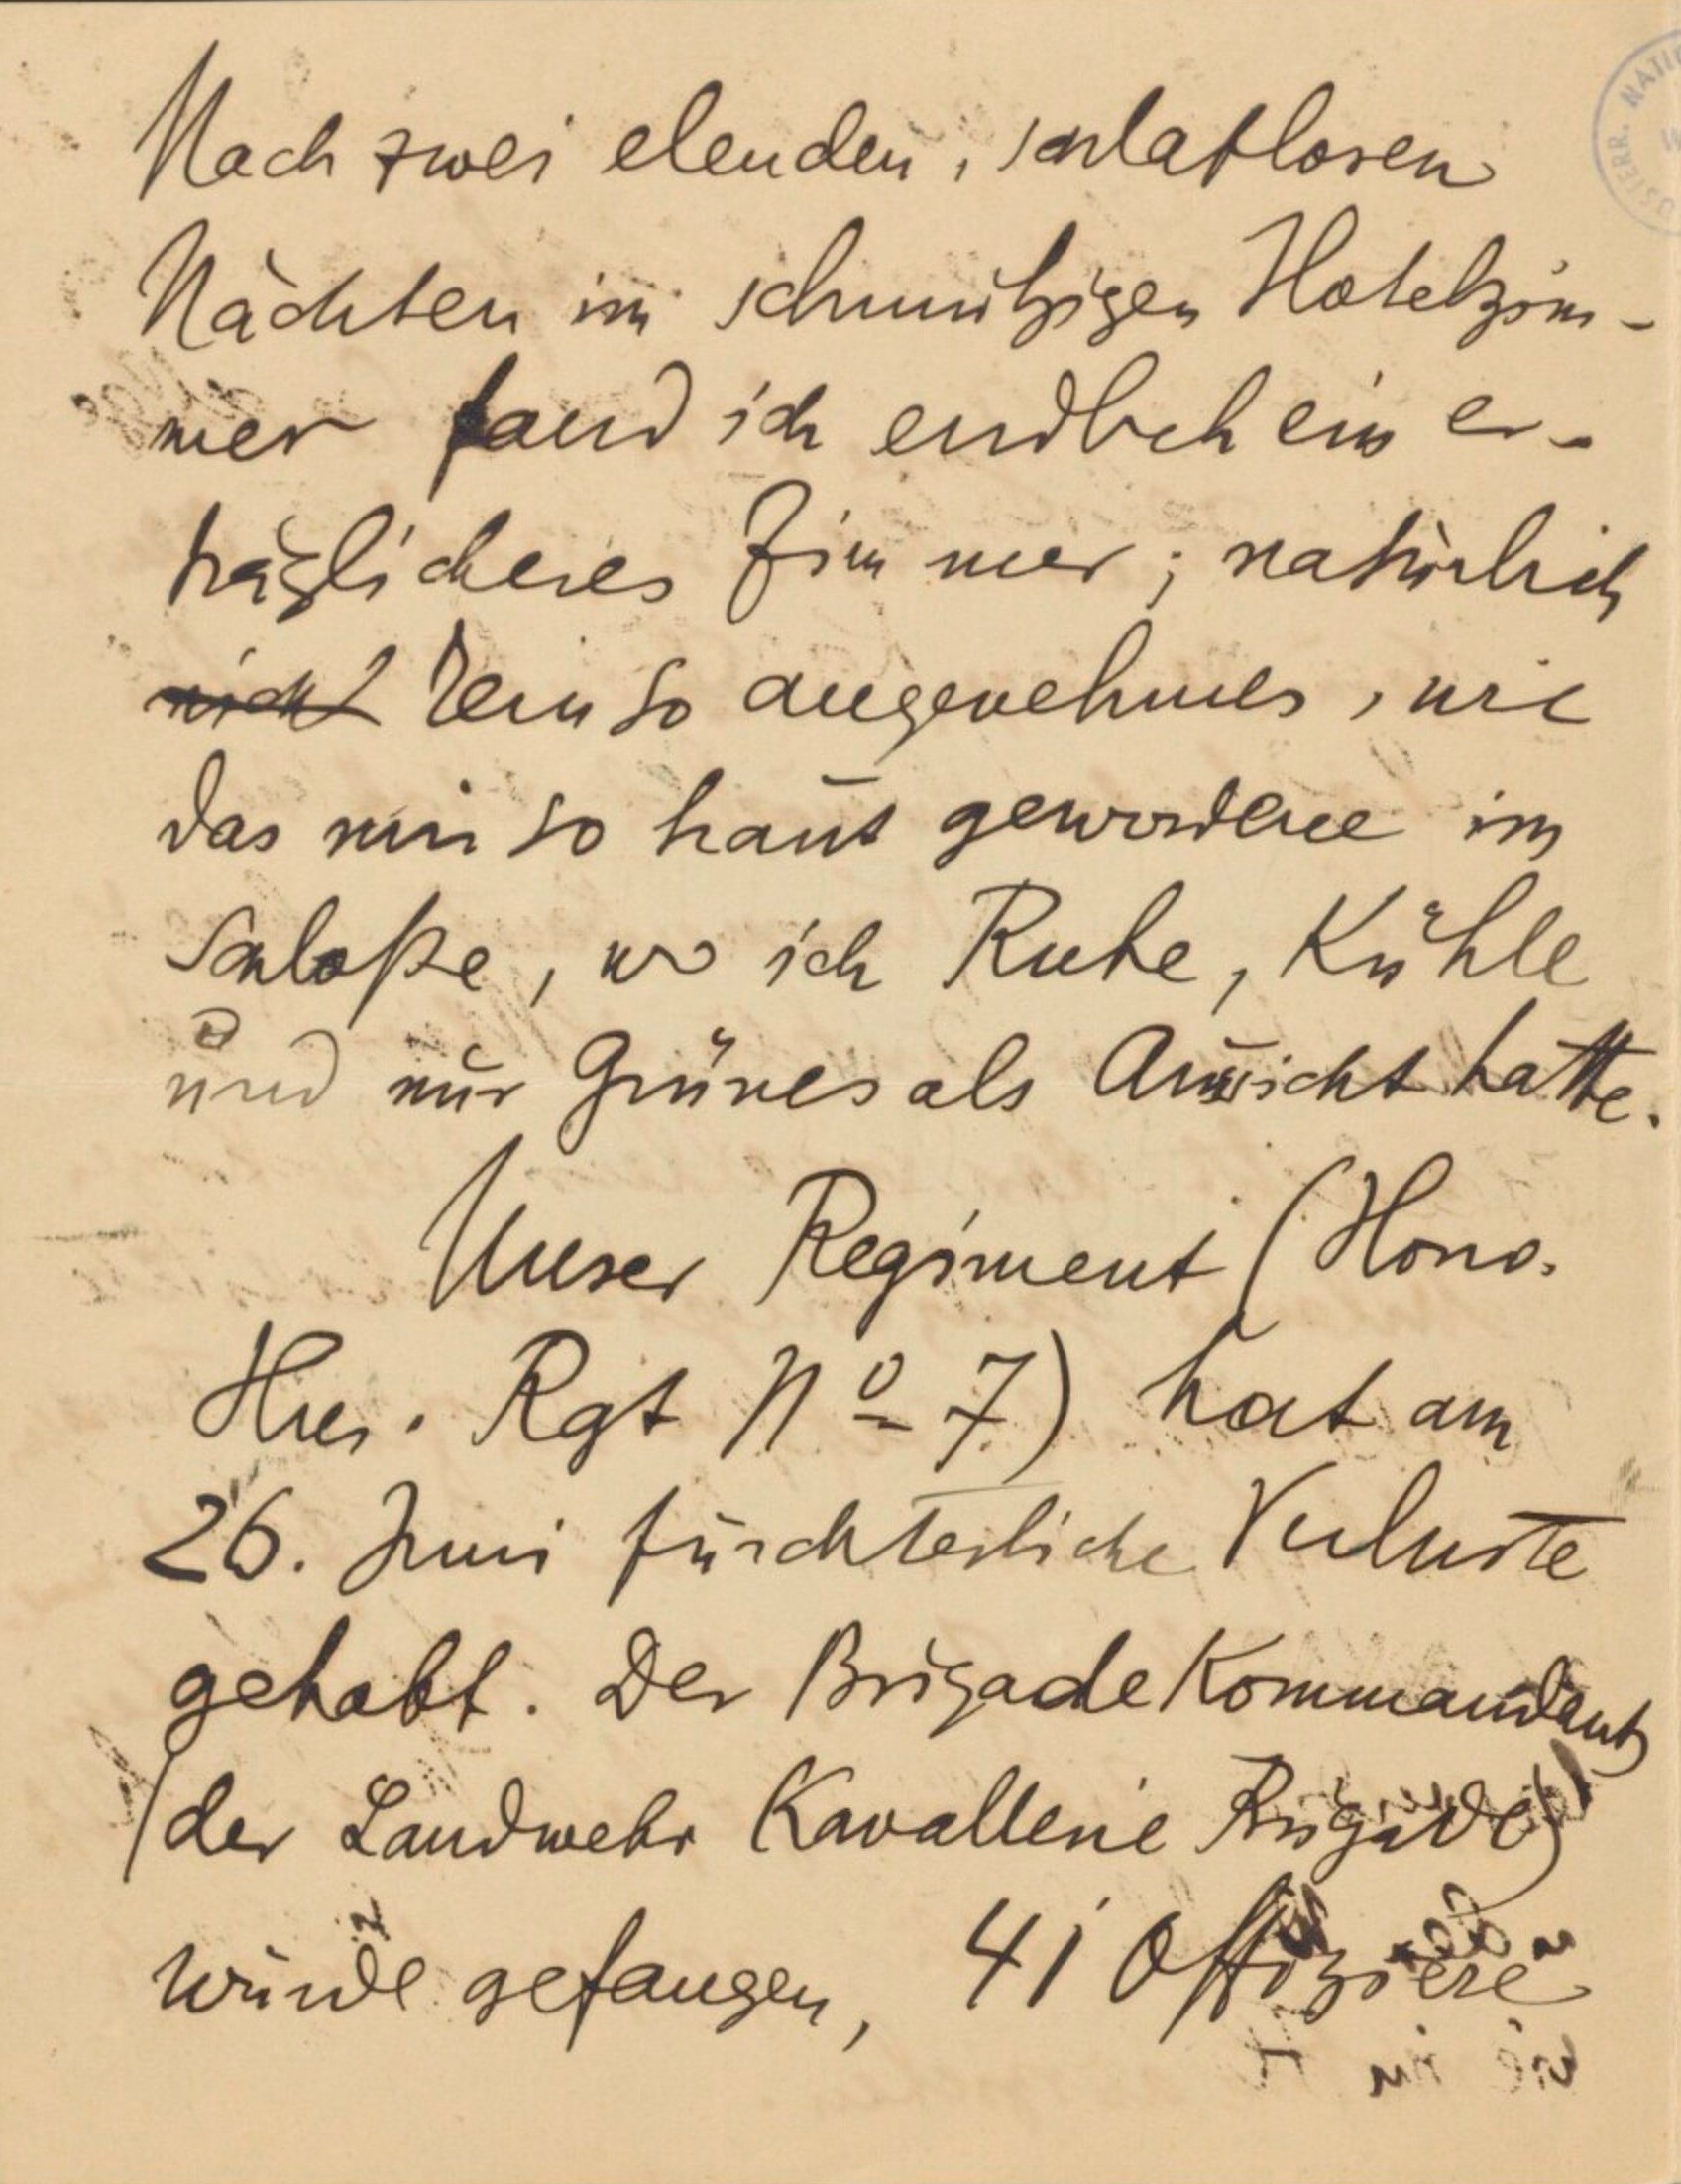 Nach zwei elenden, schlaflosen
Nächten im schmutzigen Hotelzim-
mer fand ich endlich ein er-
träglicheres Zimmer; natürlich
nicht kein so angenehmes, wie
das mir so traut gewordene im
Schloße, wo ich Ruhe, Kühle
und nur Grünes als Aussicht hatte.
Unser Regiment (Honv.
Hus. Rgt No 7) hat am
26. Juni fürchterliche Verluste
gehabt. Der Brigade Kommandant
(der Landwehr Kavallerie Brigade)
wurde gefangen, 41 Offiziere
ÖSTERR. NATIO